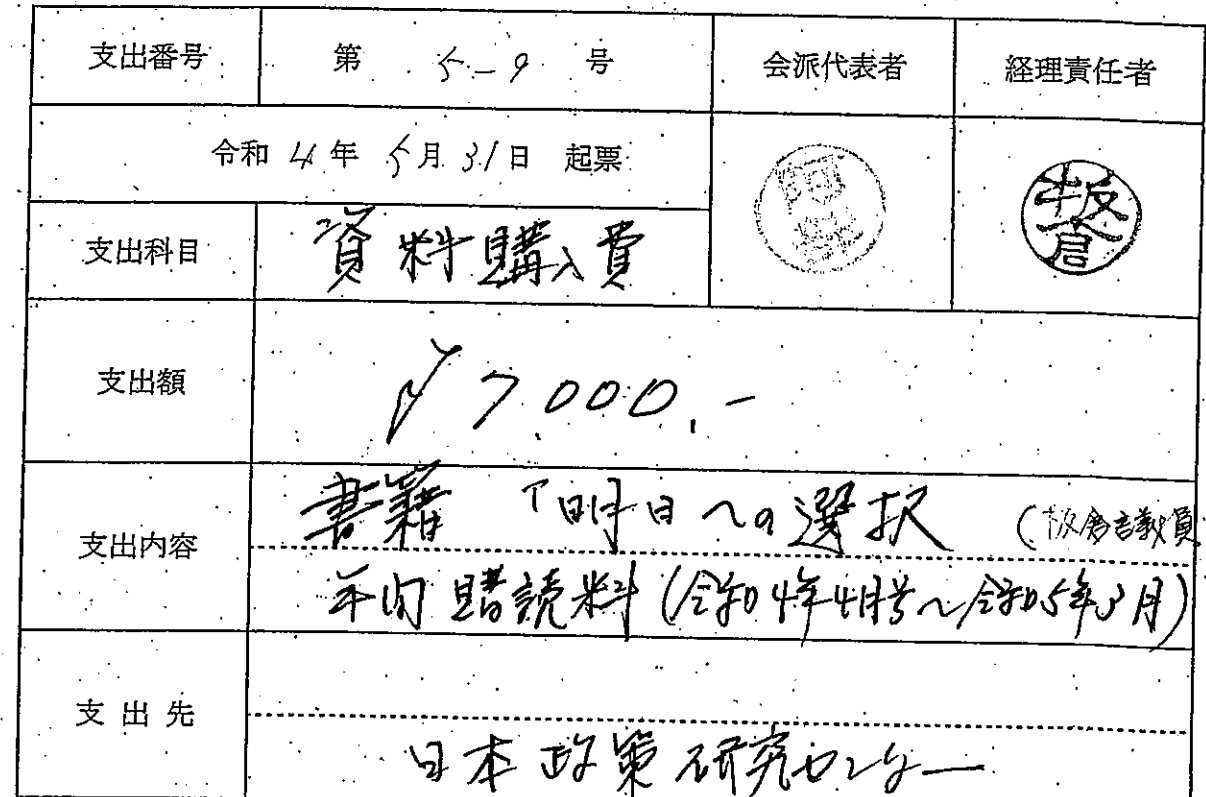 支出番号 第 5-9 号 会派代表者 経理責任者
令和 4 年 5 月 31 日 起票
板倉
支出科目 資料購入費
支出額 ¥7,000.-
支出内容 書籍 「明日への選択 (板倉議員
年間購読料 (令和4年4月号~令和5年3月)
支出先 日本政策研究センター